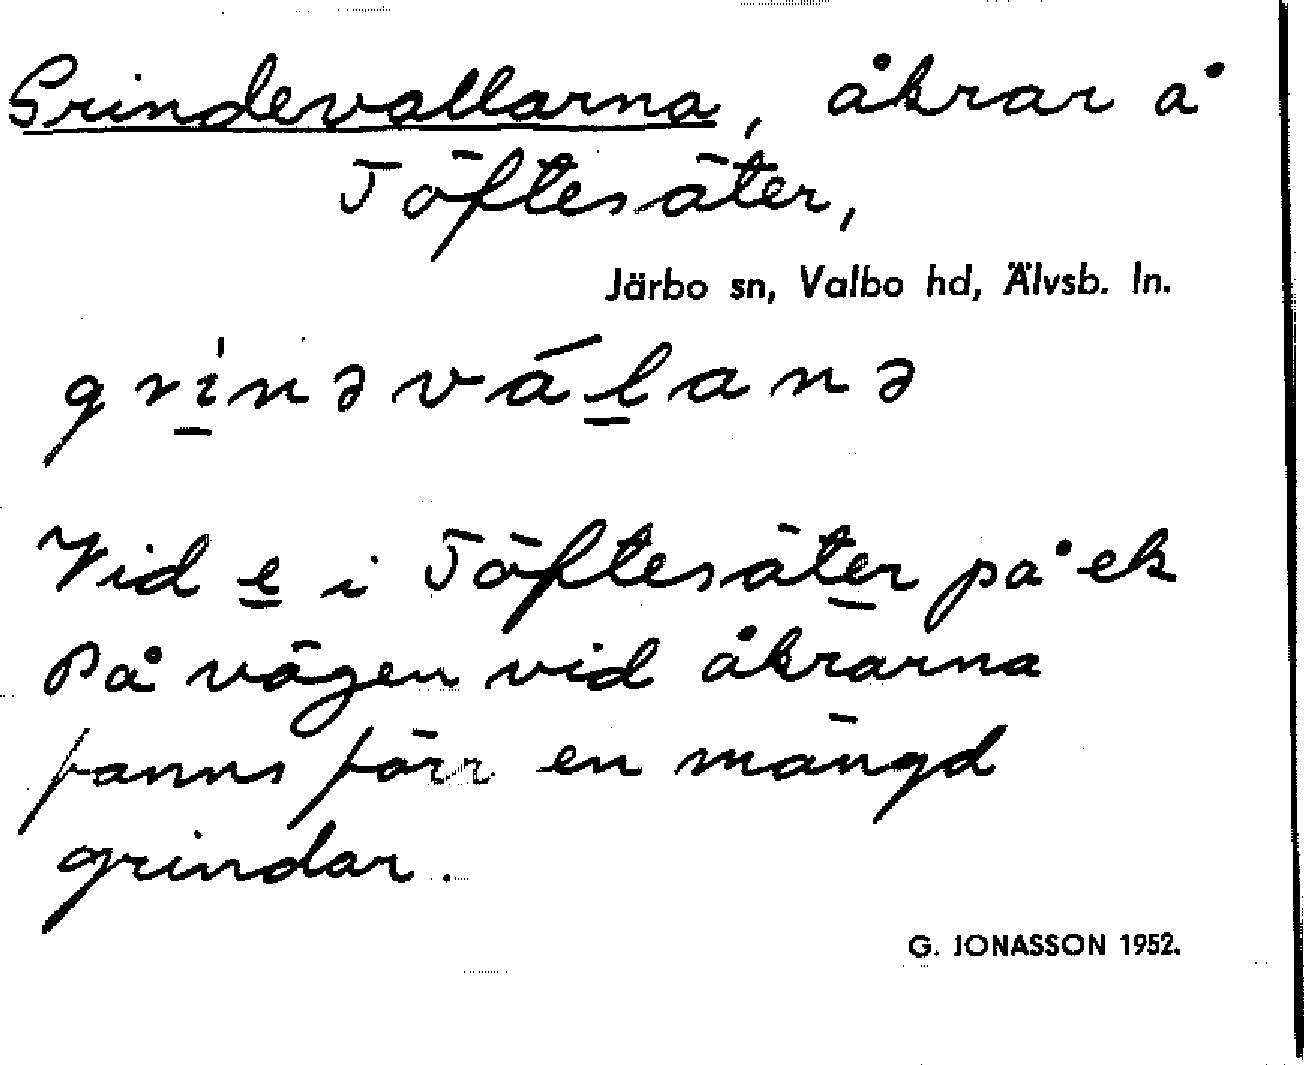 Grindevallarna, åkrar å
Töftesäter,
Järbo sn, Valbo hd, Älvsb. ln.
gri̱̍nəvá̄ḻanə
Vid e̲ i Töftesäte̲r på ek
På vägen vid åkrarna
fanns förr en mängd
grindar.
G. JONASSON 1952.